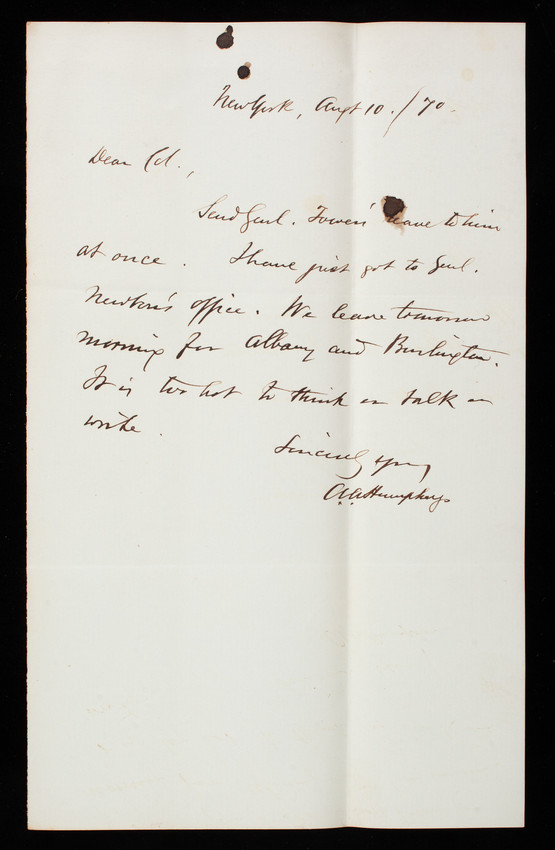 New York, Augt 10./70.
Dear Col.,
Send Genl. Tower's leave to him
at once. I have just got to Genl.
Newton's office. We leave tomorrow
morning for Albany and Burlington.
It is too hot to think or talk or
write.
Sincerely yours
A.A. Humphreys